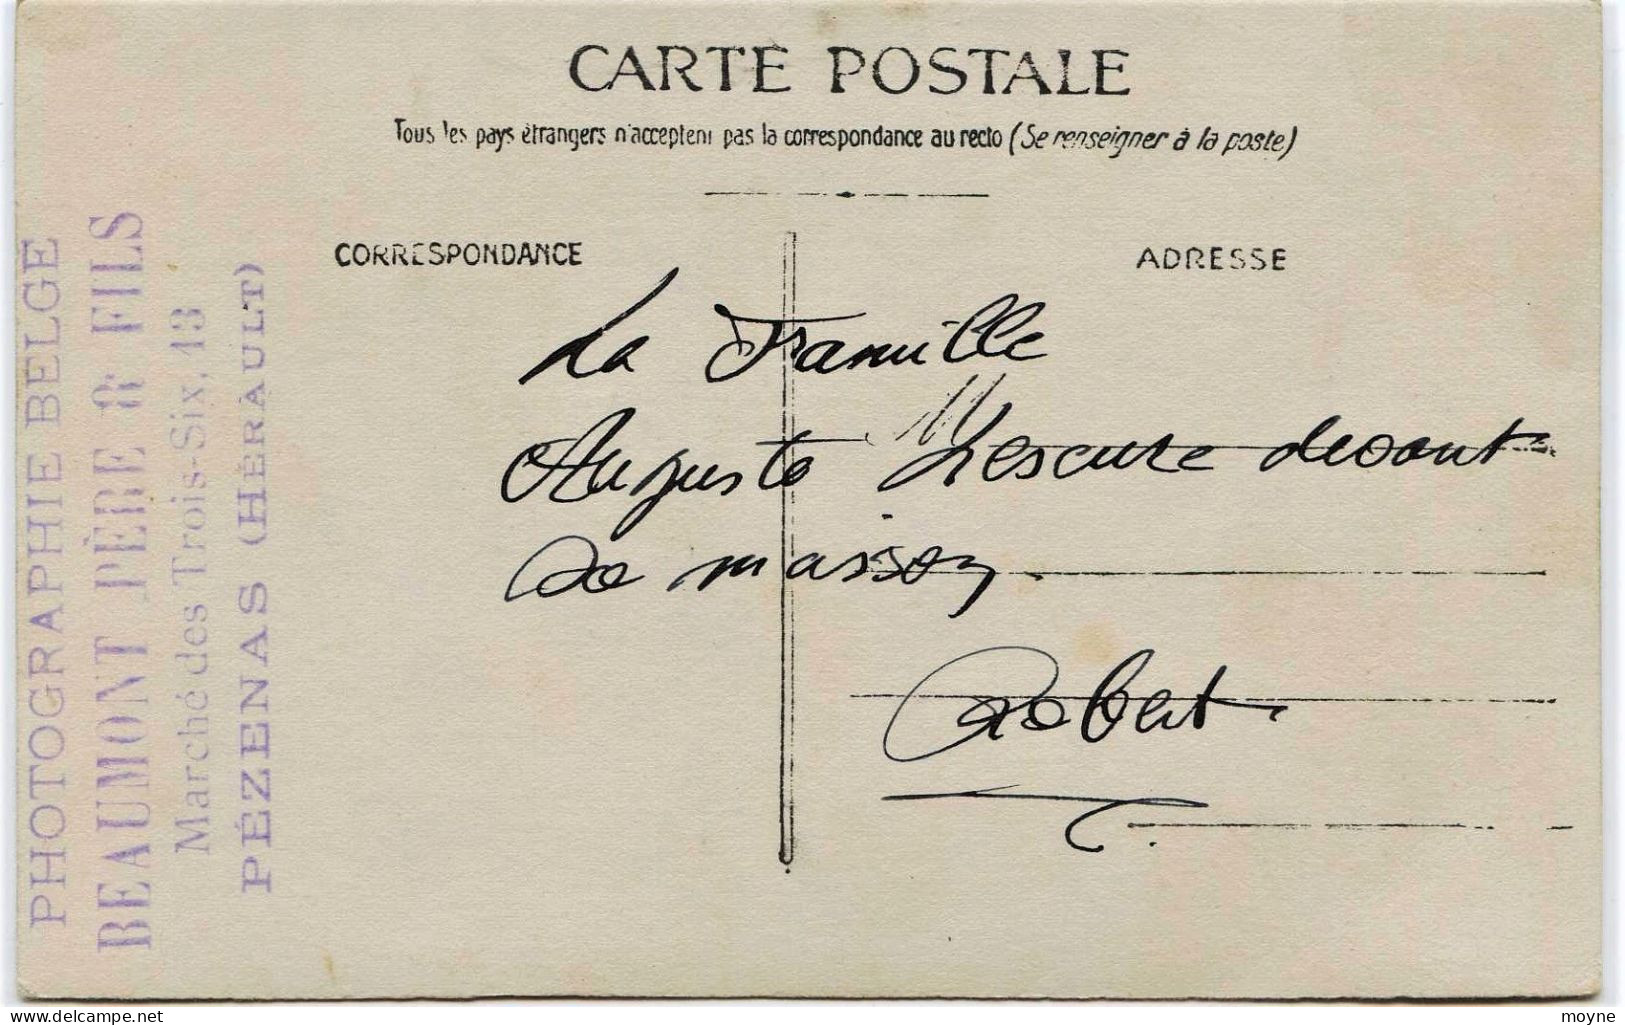 CARTE POSTALE
Tous les pays étrangers n'acceptent pas la correspondance au recto (Se renseigner à la poste)
CORRESPONDANCE
ADRESSE
La Famille
Auguste Lescure devant
Sa maison.
Robert
PHOTOGRAPHIE BELGE
BEAUMONT PÈRE & FILS
Marché des Trois-Six, 13
PÉZENAS (HÉRAULT)
delcampe.net
moyne